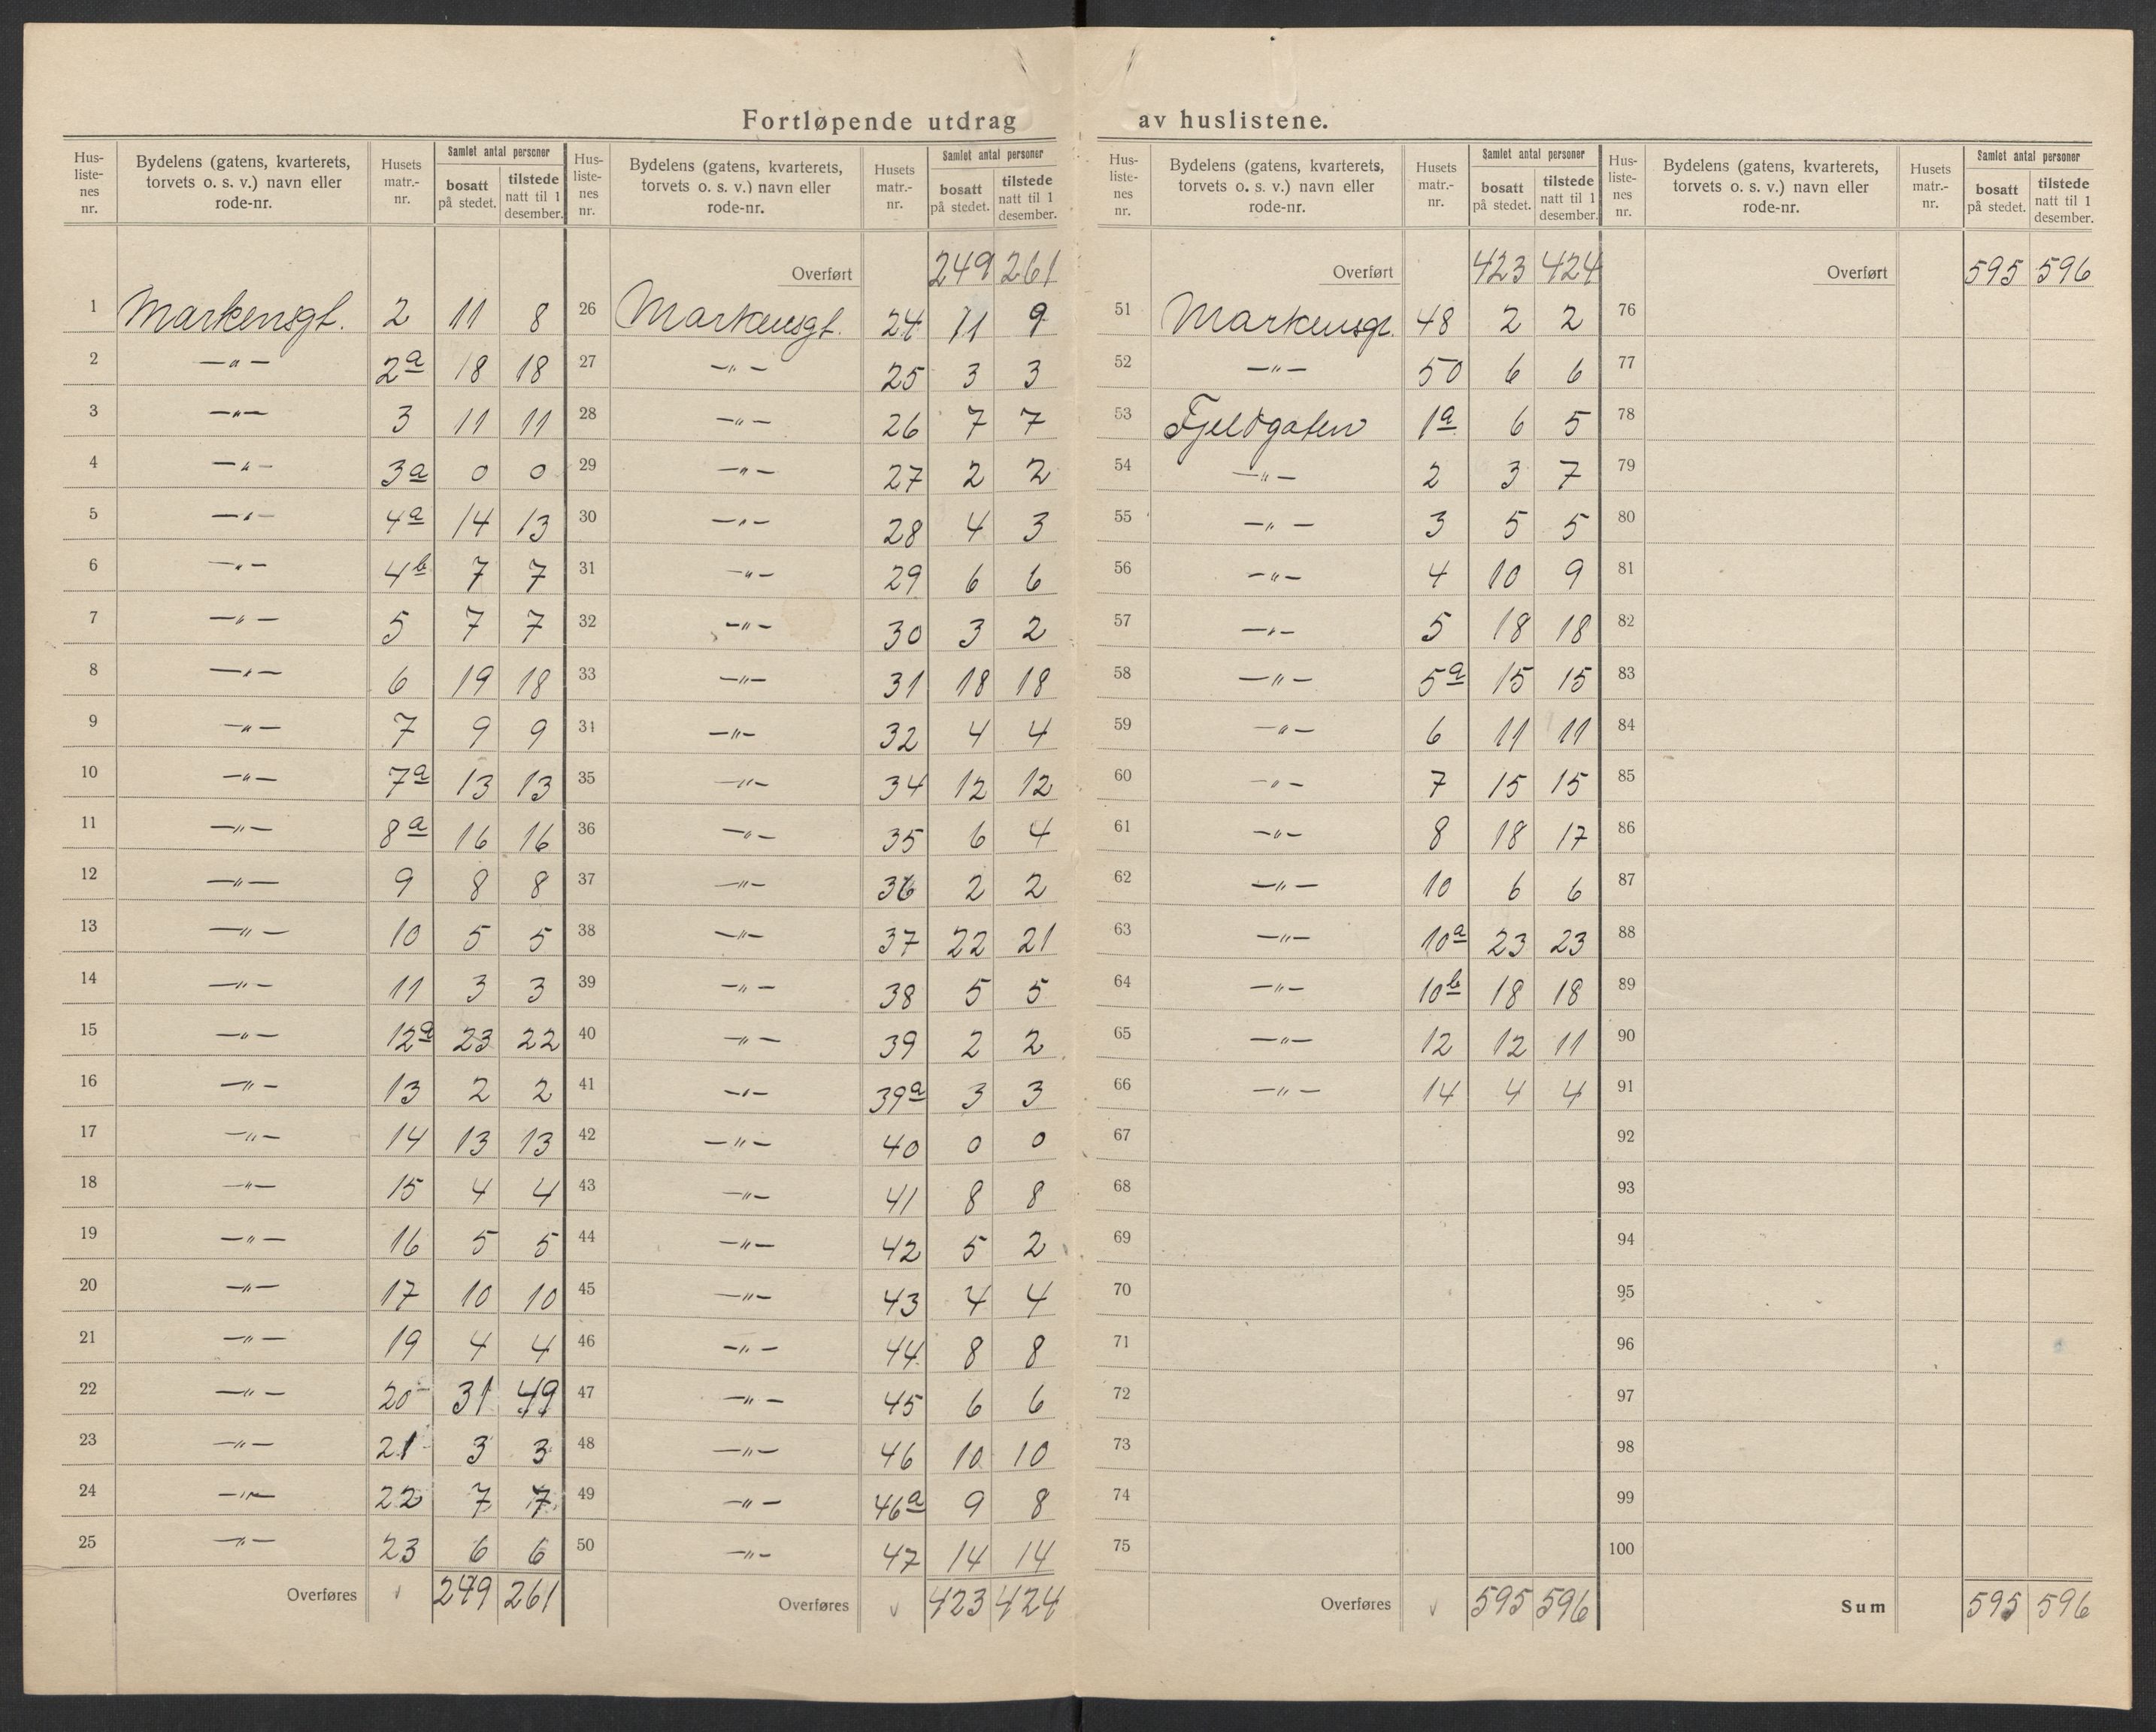 Fortløpende utdrag av huslistene.
Hus-listenes nr. | Bydelens (gatens, kvarterets, torvets o. s. v.) navn eller rode-nr. | Husets matr.-nr. | Samlet antal personer bosatt på stedet. | tilstede natt til 1 desember.
1 Markensgt. 2 11 8
2 —„— 2a 18 18
3 —„— 3 11 11
4 —„— 3a 0 0
5 —„— 4a 14 13
6 —„— 4b 7 7
7 —„— 5 7 7
8 —„— 6 19 18
9 —„— 7 9 9
10 —„— 7a 13 13
11 —„— 8a 16 16
12 —„— 9 8 8
13 —„— 10 5 5
14 —„— 11 3 3
15 —„— 12a 23 22
16 —„— 13 2 2
17 —„— 14 13 13
18 —„— 15 4 4
19 —„— 16 5 5
20 —„— 17 10 10
21 —„— 19 4 4
22 —„— 20 31 49
23 —„— 21 3 3
24 —„— 22 7 7
25 —„— 23 6 6
Overføres 249 261
Hus-listenes nr. | Bydelens (gatens, kvarterets, torvets o. s. v.) navn eller rode-nr. | Husets matr.-nr. | Samlet antal personer bosatt på stedet. | tilstede natt til 1 desember.
Overført 249 261
26 Markensgt. 24 11 9
27 —„— 25 3 3
28 —„— 26 7 7
29 —„— 27 2 2
30 —„— 28 4 3
31 —„— 29 6 6
32 —„— 30 3 2
33 —„— 31 18 18
34 —„— 32 4 4
35 —„— 34 12 12
36 —„— 35 6 4
37 —„— 36 2 2
38 —„— 37 22 21
39 —„— 38 5 5
40 —„— 39 2 2
41 —„— 39a 3 3
42 —„— 40 0 0
43 —„— 41 8 8
44 —„— 42 5 2
45 —„— 43 4 4
46 —„— 44 8 8
47 —„— 45 6 6
48 —„— 46 10 10
49 —„— 46a 9 8
50 —„— 47 14 14
Overføres 423 424
Hus-listenes nr. | Bydelens (gatens, kvarterets, torvets o. s. v.) navn eller rode-nr. | Husets matr.-nr. | Samlet antal personer bosatt på stedet. | tilstede natt til 1 desember.
Overført 423 424
51 Markensgt. 48 2 2
52 —„— 50 6 6
53 Fjeldgaten 1a 6 5
54 —„— 2 3 7
55 —„— 3 5 5
56 —„— 4 10 9
57 —„— 5 18 18
58 —„— 5a 15 15
59 —„— 6 11 11
60 —„— 7 15 15
61 —„— 8 18 17
62 —„— 10 6 6
63 —„— 10a 23 23
64 —„— 10b 18 18
65 —„— 12 12 11
66 —„— 14 4 4
67
68
69
70
71
72
73
74
75
Overføres 595 596
Hus-listenes nr. | Bydelens (gatens, kvarterets, torvets o. s. v.) navn eller rode-nr. | Husets matr.-nr. | Samlet antal personer bosatt på stedet. | tilstede natt til 1 desember.
Overført 595 596
76
77
78
79
80
81
82
83
84
85
86
87
88
89
90
91
92
93
94
95
96
97
98
99
100
Sum 595 596